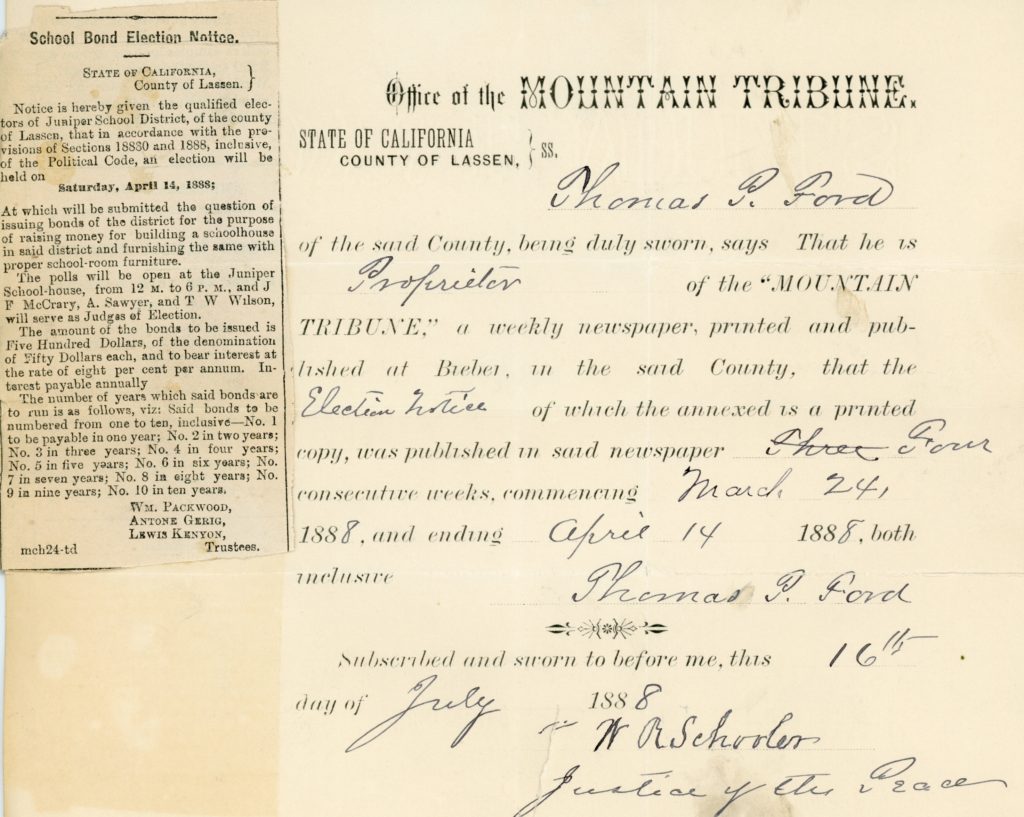 School Bond Election Notice.
STATE OF CALIFORNIA, }
County of Lassen. }
Notice is hereby given the qualified elec-
tors of Juniper School District, of the county
of Lassen, that in accordance with the pro-
visions of Sections 18830 and 1888, inclusive,
of the Political Code, an election will be
held on
Saturday, April 14, 1888;
At which will be submitted the question of
issuing bonds of the district for the purpose
of raising money for building a schoolhouse
in said district and furnishing the same with
proper school-room furniture.
The polls will be open at the Juniper
School-house, from 12 M. to 6 P. M., and J
F McCrary, A. Sawyer, and T W Wilson,
will serve as Judges of Election.
The amount of the bonds to be issued is
Five Hundred Dollars, of the denomination
of Fifty Dollars each, and to bear interest at
the rate of eight per cent per annum. In-
terest payable annually
The number of years which said bonds are
to run is as follows, viz: Said bonds to be
numbered from one to ten, inclusive—No. 1
to be payable in one year; No. 2 in two years;
No. 3 in three years; No. 4 in four years;
No. 5 in five years; No. 6 in six years; No.
7 in seven years; No. 8 in eight years; No.
9 in nine years; No. 10 in ten years.
WM. PACKWOOD,
ANTONE GERIG,
LEWIS KENYON,
mch24-td Trustees.
Office of the MOUNTAIN TRIBUNE.
STATE OF CALIFORNIA
COUNTY OF LASSEN, } ss.
Thomas P. Ford
of the said County, being duly sworn, says That he is
Proprietor of the "MOUNTAIN
TRIBUNE," a weekly newspaper, printed and pub-
lished at Bieber, in the said County, that the
Election Notice of which the annexed is a printed
copy, was published in said newspaper Three Four
consecutive weeks, commencing March 24,
1888, and ending April 14 1888, both
inclusive
Thomas P. Ford
Subscribed and sworn to before me, this 16th
day of July 1888
W R Schooler
Justice of the Peace